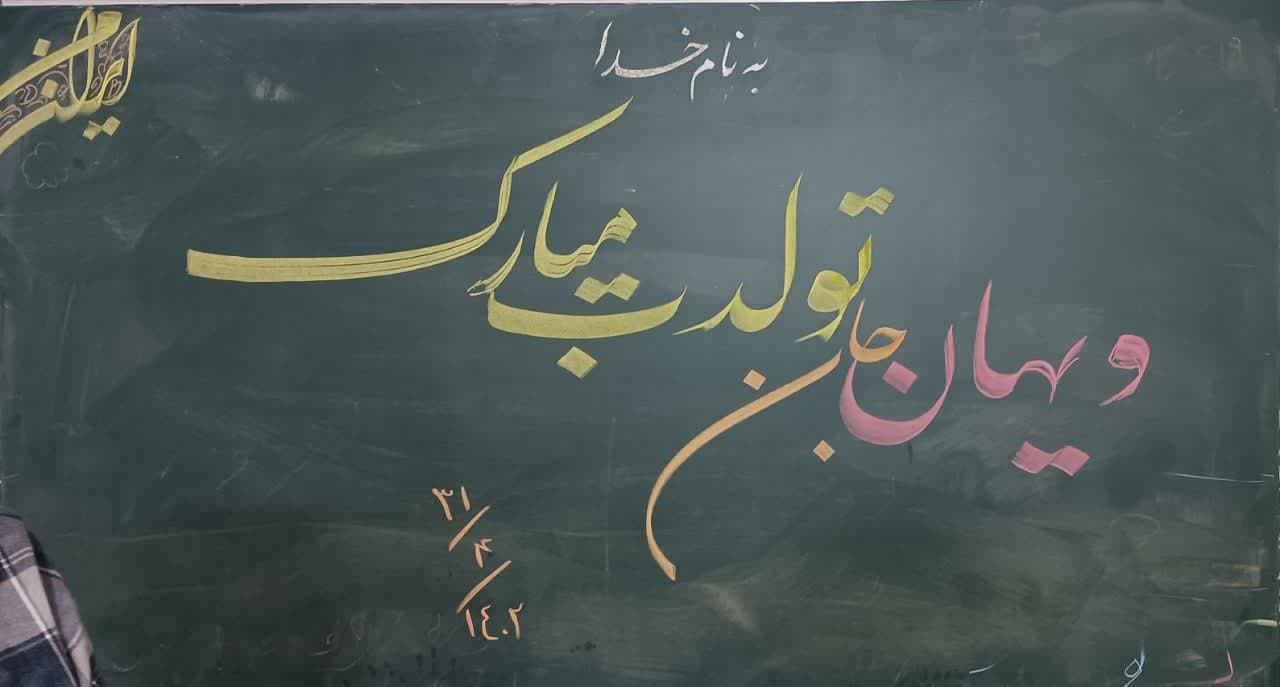 به نام خدا
ایران من
ویهان جان تولدت مبارک
۳۱/۴/۱۴۰۲